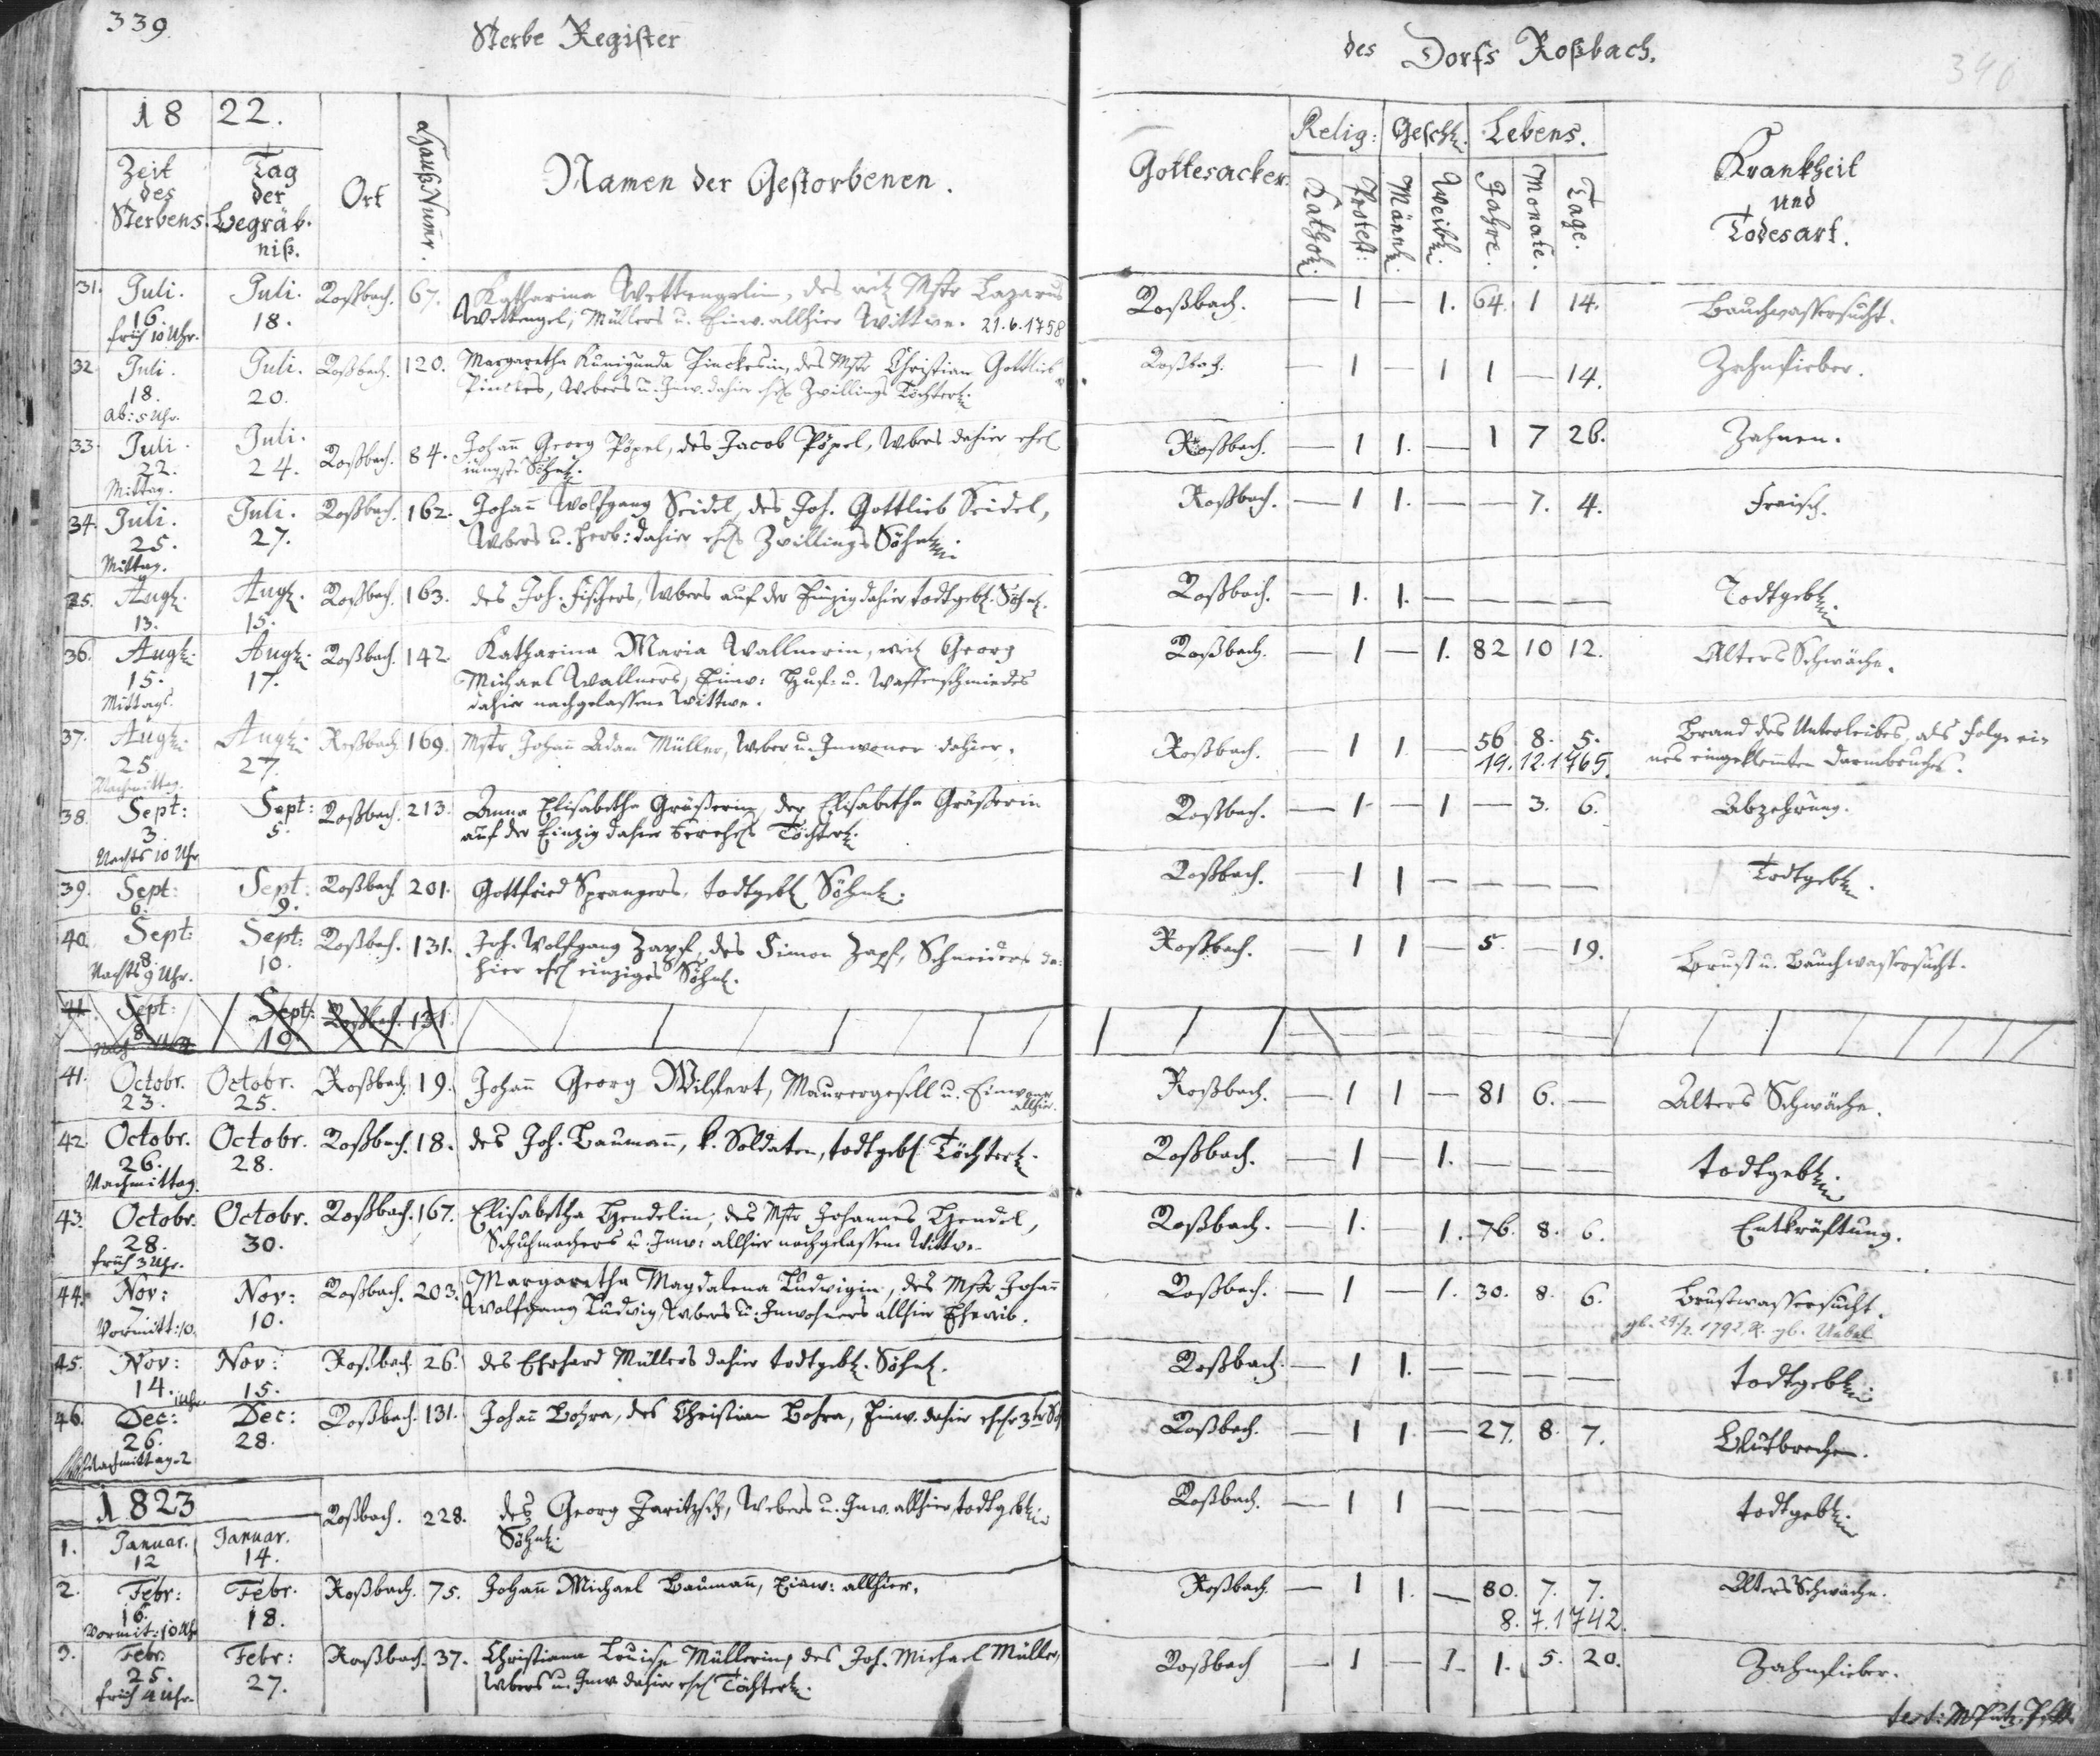 339.
Sterbe Register
des Dorfs Roßbach.
340
18 22.
Zeit des Sterbens.
Tag der Begräbniß.
Ort
Hauß Numr.
Namen der Gestorbenen.
Gottesacker.
Relig:
Kathol.
Protest:
Geschl.
Männl.
Weibl.
Lebens.
Jahre.
Monate.
Tage.
Krankheit und Todesart.
31. Juli. 16. früh 10 Uhr. Juli. 18. Roßbach. 67. Katharina Wettengelin, des Mstr Lazarus
Wettengel, Müllers u. Einw. allhier Wittwe. 21.6.1758 Roßbach. — 1 — 1. 64. 1 14. Bauchwassersucht.
32. Juli. 18. Ab: 5 Uhr. Juli. 20. Roßbach. 120. Margaretha Kunigunda Pinckesin, des Mstr Christian Gottlieb
Pinckes, Webers u. Inw. dahier ehel Zwillings Töchterl. Roßbach. — 1 — 1 1 — 14. Zahnfieber.
33. Juli. 22. Mittag. Juli. 24. Roßbach. 84. Johañ Georg Pöpel, des Jacob Pöpel, Webers dahier ehel
jüngst. Söhnl. Roßbach. — 1 1. — 1 7 26. Zahnen.
34. Juli. 25. Mittag. Juli. 27. Roßbach. 162. Johañ Wolfgang Seidel, des Joh. Gottlieb Seidel,
Webers u. Herb: dahier ehel Zwillings Söhnl. Roßbach. — 1 1. — — 7. 4. Fraisch.
35. Augl. 13. Augl. 15. Roßbach. 163. des Joh. Fischers, Webers auf der Einzig dahier todtgebl. Söhnl. Roßbach. — 1. 1. — — — — Todtgebl.
36. Augl. 15. Mittags. Augl. 17. Roßbach. 142. Katharina Maria Wallnerin, Georg
Michael Wallners, Einw: Huf- u. Waffenschmiedes
dahier nachgelassene Wittwe. Roßbach. — 1 — 1. 82 10 12. Alters Schwäche.
37. Augl. 25. Nachmittag. Augl. 27. Roßbach. 169. Mstr Johañ Adam Müller, Weber u. Inwoner dahier. Roßbach. — 1 1. — 56. 8. 5. Brand des Unterleibes, als Folge ei-
19.12.1765. nes eingeklemten Darmbruches.
38. Sept: 3. Nachts 10 Uhr Sept: 5. Roßbach. 213. Anna Elisabetha Gräßerin, der Elisabetha Gräßerin
auf der Einzig dahier Töchterl. Roßbach. — 1 — 1 — 3. 6. Abzehrung.
39. Sept: 6. Sept: 9. Roßbach. 201. Gottfried Sprangers, todtgebl Söhnl. Roßbach. — 1 1 — — — — Todtgebl.
40. Sept: 8. Nachts 9 Uhr. Sept: 10. Roßbach. 131. Joh. Wolfgang Zapf, des Simon Zapf, Schneiders da-
hier ehel einziges Söhnl. Roßbach. — 1 1 — 5. — 19. Brust u. Bauchwassersucht.
41. Sept: 8 Sept: 10. Roßbach. 131.
41. Octobr. 23. Octobr. 25. Roßbach. 19. Johañ Georg Wilfert, Maurergesell u. Einwoner
allhier. Roßbach. — 1 1 — 81 6. — Alters Schwäche.
42. Octobr. 26. Nachmittag. Octobr. 28. Roßbach. 18. des Joh. Baumañ, k. Soldaten, todtgebl. Töchterl. Roßbach. — 1 — 1. — — — todtgebl.
43. Octobr. 28. früh 3 Uhr. Octobr. 30. Roßbach. 167. Elisabetha Hendelin, des Mstr Johannes Hendel,
Schuhmachers u. Inw: allhier nachgelassene Wittwe Roßbach. — 1. — 1. 76. 8. 6. Entkräftung.
44. Nov: 7. Vormitt: 10. Nov: 10. Roßbach. 203. Margaretha Magdalena Ludwigin, des Mstr Johañ
Wolfgang Ludwig, Webers u. Inwohners allhier Eheweib. Roßbach. — 1 — 1. 30. 8. 6. Brustwassersucht.
gb. 29/2. 1792, gb. Uebel
45. Nov: 14. 1 Uhr Nov: 15. Roßbach. 26. des Erhard Müllers dahier todtgebl. Söhnl. Roßbach. — 1 1. — — — — todtgebl.
46. Dec: 26. Nachmittag 2 Dec: 28. Roßbach. 131. Johañ Bohra, des Christian Bohra, Einw. dahier 3tr Roßbach. — 1 1. — 27. 8. 7. Blutbrechen.
1823
1. Januar. 12 Januar. 14. Roßbach. 228. des Georg Jaritzsch, Webers u. Inw. allhier todtgebl.
Söhnl. Roßbach. — 1 1 — — — — todtgebl.
2. Febr: 16. Vormit: 10 Uhr Febr. 18. Roßbach. 75. Johañ Michael Baumañ, Einw: allhier. Roßbach. — 1 1. — 80. 7. 7. Alters Schwäche.
8.7.1742.
3. Febr. 25. früh 4 Uhr. Febr: 27. Roßbach. 37. Christiana Louise Müllerin, des Joh. Michael Müller,
Webers u. Inw dahier ehel Töchterl. Roßbach — 1 — 1. 1. 5. 20. Zahnfieber.